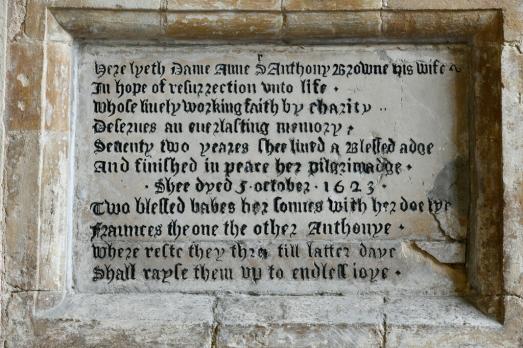 Here lyeth Dame Anne Sr Anthony Browne his wife
In hope of resurrection vnto life ·
whose liuely working faith by charity ··
Deserues an euerlasting memory ·
Seuenty two yeares shee liued a Blessed adge
And finished in peace her pilgrimadge ·
· Shee dyed 5 · october · 1623 ·
Two blessed babes her sonnes with her doe lye
Fraunces the one the other Anthonye ·
where reste they thre till latter daye
Shall rayse them vp to endless ioye ·